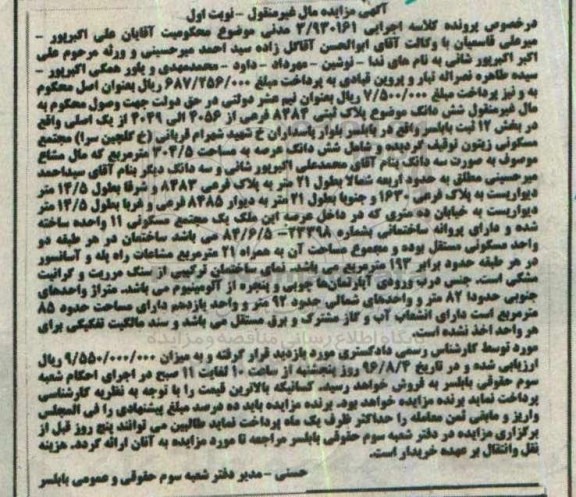 آگهی مزایده مال غیرمنقول - نوبت اول
درخصوص پرونده کلاسه اجرایی ۳/۹۳۰۱۶۱ مدنی موضوع محکومیت آقایان علی اکبرپور -
میرعلی قاسمیان با وکالت آقای ابوالحسن آقاگل زاده سید احمد میرحسینی و ورثه مرحوم علی
اکبر اکبرپور شانی به نام های ندا - نوشین - مهرداد - داود - محمدمهدی و یاور همگی اکبرپور -
سیده طاهره نصراله تبار و پروین قبادی به پرداخت مبلغ ۶۸۷/۲۵۶/۰۰۰ ریال بعنوان اصل محکوم
به و نیز پرداخت مبلغ ۷/۵۰۰/۰۰۰ ریال بعنوان نیم عشر دولتی در حق دولت جهت وصول محکوم به
مال غیرمنقول شش دانگ موضوع پلاک ثبتی ۸۴۸۴ فرعی از ۴۰۵۶ الی ۴۰۴۹ از یک اصلی واقع
در بخش ۱۲ ثبت بابلسر واقع در بابلسر بلوار پاسداران خ شهید شهرام قربانی (خ گلچین سرا) مجتمع
مسکونی زیتون توقیف گردیده و شامل شش دانگ عرصه به مساحت ۳۰۴/۵ مترمربع که مال مشاع
موصوف به صورت سه دانگ بنام آقای محمدعلی اکبرپور شانی و سه دانگ دیگر بنام آقای سیداحمد
میرحسینی مطلق به حدود اربعه شمالا بطول ۲۱ متر به پلاک فرعی ۸۴۸۳ و شرقا بطول ۱۴/۵ متر
دیواریست به پلاک فرعی ۱۶۳۰ و جنوبا بطول ۲۱ متر به دیوار ۸۴۸۵ فرعی و غربا بطول ۱۴/۵ متر
دیواریست به خیابان ده متری که در داخل عرصه این ملک یک مجتمع مسکونی ۱۱ واحده ساخته
شده و دارای پروانه ساختمانی بشماره ۲۳۳۹۸-۸۴/۶/۵ می باشد ساختمان در هر طبقه دو
واحد مسکونی مستقل بوده و مجموع مساحت آن به همراه ۲۱ مترمربع مشاعات راه پله و آسانسور
در هر طبقه حدود برابر ۱۹۳ مترمربع می باشد. نمای ساختمان ترکیبی از سنگ مرمریت و گرانیت
مشکی است. جنس درب ورودی آپارتمان‌ها چوبی و پنجره از آلومینیوم می باشد. متراژ واحدهای
جنوبی حدودا ۸۲ متر و واحدهای شمالی حدود ۹۲ متر و واحد یازدهم دارای مساحت حدود ۸۵
مترمربع است دارای انشعاب آب و گاز مشترک و برق مستقل می باشد و سند مالکیت تفکیکی برای
هر واحد اخذ نشده است.
مورد توسط کارشناس رسمی دادگستری مورد بازدید قرار گرفته و به میزان ۹/۵۵۰/۰۰۰/۰۰۰ ریال
ارزیابی شده و در تاریخ ۹۶/۸/۴ روز پنجشنبه از ساعت ۱۰ لغایت ۱۱ صبح در اجرای احکام شعبه
سوم حقوقی بابلسر به فروش خواهد رسید. کسانیکه بالاترین قیمت را با توجه به نظریه کارشناسی
پرداخت نماید برنده مزایده خواهد بود. برنده مزایده باید ده درصد مبلغ پیشنهادی را فی المجلس
واریز و مابقی ثمن معامله را حداکثر ظرف یک ماه پرداخت نماید طالبین می توانند پنج روز قبل از
برگزاری مزایده در دفتر شعبه سوم حقوقی بابلسر مراجعه تا مورد مزایده به آنان ارائه گردد. هزینه
نقل وانتقال بر عهده خریدار است.
حسنی - مدیر دفتر شعبه سوم حقوقی و عمومی بابلسر